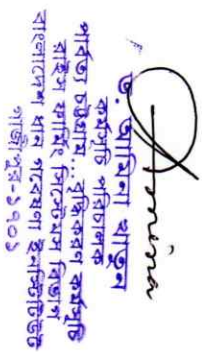 Amina
ড. আমিনা খাতুন
কর্মসূচি পরিচালক
পার্বত্য চট্টগ্রাম... কর্মসূচি
রাইস ফার্মিং সিস্টেমস বিভাগ
বাংলাদেশ ধান গবেষণা ইনস্টিটিউট
গাজীপুর-১৭০১